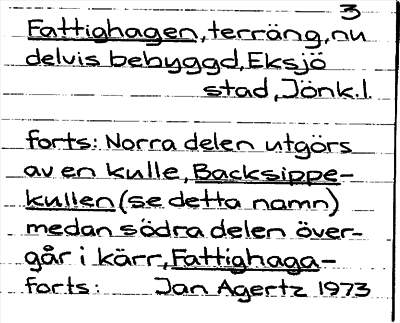 3
Fattighagen, terräng, nu
delvis bebyggd, Eksjö
stad, Jönk.l.
forts: Norra delen utgörs
av en kulle, Backsippe-
kullen (se detta namn)
medan södra delen över-
går i kärr, Fattighaga-
forts: Jan Agertz 1973